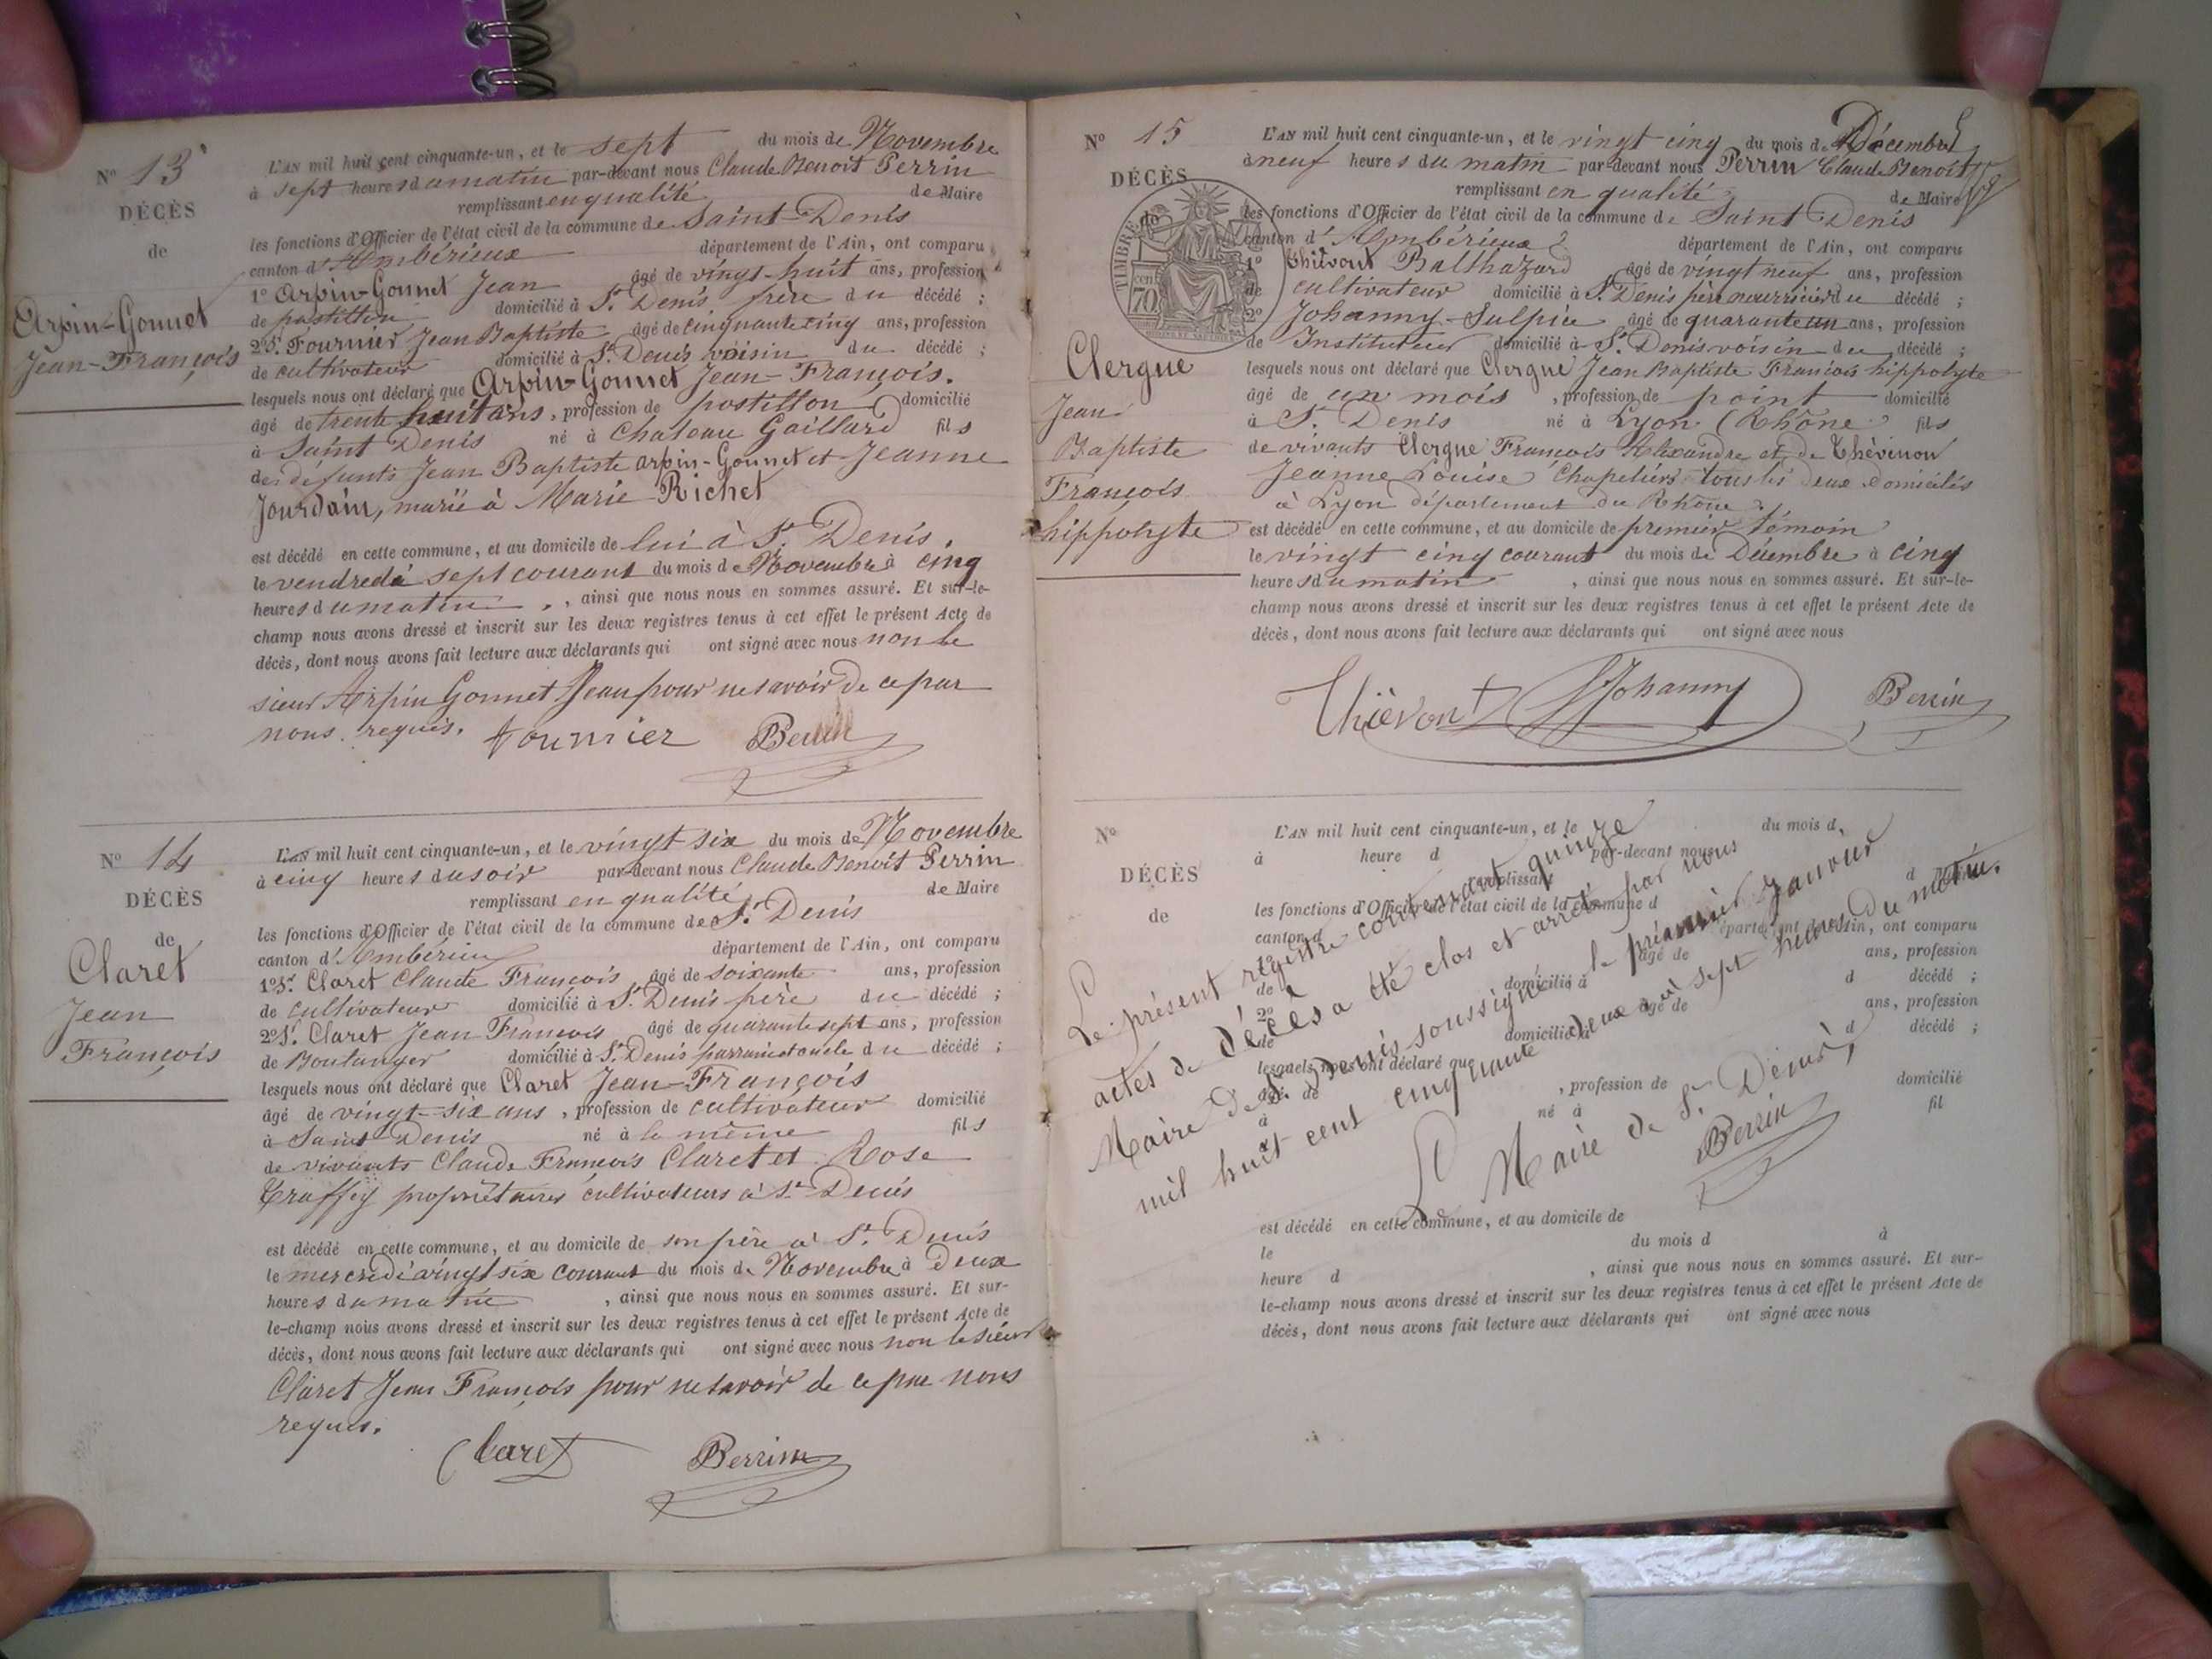 N° 13
DÉCÈS
de
Arpin-Gonnet
Jean-François
L'AN mil huit cent cinquante-un, et le sept du mois de Novembre
à sept heures du matin par-devant nous Claude Benoit Perrin
remplissant en qualité de Maire
les fonctions d'Officier de l'état civil de la commune de Saint-Denis
canton d'Ambérieux département de l'Ain, ont comparu
1° Arpin-Gonnet Jean âgé de vingt-huit ans, profession
de postillon domicilié à St. Denis frère du décédé ;
2° Sr. Fournier Jean Baptiste âgé de cinquante cinq ans, profession
de cultivateur domicilié à St. Denis voisin du décédé ;
lesquels nous ont déclaré que Arpin-Gonnet Jean-François.
âgé de trente huit ans, profession de postillon domicilié
à Saint Denis né à Chateau Gaillard fils
des défunts Jean Baptiste Arpin-Gonnet et Jeanne
Jourdain, marié à Marie Richet
est décédé en cette commune, et au domicile de lui à St. Denis.
le vendredi sept courant du mois de Novembre à cinq
heures du matin, ainsi que nous nous en sommes assuré. Et sur-le-
champ nous avons dressé et inscrit sur les deux registres tenus à cet effet le présent Acte de
décès, dont nous avons fait lecture aux déclarants qui ont signé avec nous non le
sieur Arpin Gonnet Jean pour ne savoir de ce par
nous requis. Fournier Perrin
N° 14
DÉCÈS
de
Claret
Jean
François
L'AN mil huit cent cinquante-un, et le vingt six du mois de Novembre
à cinq heures du soir par-devant nous Claude Benoit Perrin
remplissant en qualité de Maire
les fonctions d'Officier de l'état civil de la commune de St. Denis
canton d'Ambérieux département de l'Ain, ont comparu
1° Sr. Claret Claude François âgé de soixante ans, profession
de cultivateur domicilié à St. Denis père du décédé ;
2° Sr. Claret Jean François âgé de quarante sept ans, profession
de Boulanger domicilié à St. Denis parrain et oncle du décédé ;
lesquels nous ont déclaré que Claret Jean-François
âgé de vingt-six ans, profession de cultivateur domicilié
à Saint Denis né à le même fils
de vivants Claude François Claret et Rose
Truffey propriétaires cultivateurs à St. Denis
est décédé en cette commune, et au domicile de son père à St. Denis
le mercredi vingt six courant du mois de Novembre à deux
heures du matin, ainsi que nous nous en sommes assuré. Et sur-
le-champ nous avons dressé et inscrit sur les deux registres tenus à cet effet le présent Acte de
décès, dont nous avons fait lecture aux déclarants qui ont signé avec nous non le sieur
Claret Jean François pour ne savoir de ce par nous
requis.
Claret Perrin
N° 15
DÉCÈS
de
TIMBRE
70 CEN
Clergue
Jean
Baptiste
François
hippolyte
L'AN mil huit cent cinquante-un, et le vingt cinq du mois de Décembre
à neuf heures du matin par-devant nous Perrin Claude Benoit
remplissant en qualité de Maire
les fonctions d'Officier de l'état civil de la commune de Saint Denis
canton d'Ambérieux département de l'Ain, ont comparu
1° Thiévont Balthazard âgé de vingt neuf ans, profession
de cultivateur domicilié à St. Denis père nourricier du décédé ;
2° Johanny-Sulpice âgé de quarante un ans, profession
de Instituteur domicilié à St. Denis voisin du décédé ;
lesquels nous ont déclaré que Clergue Jean Baptiste François hippolyte
âgé de un mois, profession de point domicilié
à St. Denis né à Lyon (Rhône) fils
de vivants Clergue François Alexandre et de Thévenon
Jeanne Louise Chapeliers tous les deux domiciliés
à Lyon département du Rhône.
est décédé en cette commune, et au domicile de premier témoin
le vingt cinq courant du mois de Décembre à cinq
heures du matin, ainsi que nous nous en sommes assuré. Et sur-le-
champ nous avons dressé et inscrit sur les deux registres tenus à cet effet le présent Acte de
décès, dont nous avons fait lecture aux déclarants qui ont signé avec nous
Thiévont SJohanny Perrin
N°
DÉCÈS
de
L'AN mil huit cent cinquante-un, et le du mois d
à heure d par-devant nous
remplissant d
les fonctions d'Officier de l'état civil de la commune d
canton d département de l'Ain, ont comparu
1° âgé de ans, profession
de domicilié à d décédé ;
2° âgé de ans, profession
de domicilié à d décédé ;
lesquels nous ont déclaré que
âgé de , profession de domicilié
à né à fil
Le présent registre contenant quinze
actes de décès a été clos et arrêté par nous
Maire de St. Denis soussigné le premier Janvier
mil huit cent cinquante deux à sept heures du matin.
Le Maire de St. Denis,
Perrin
est décédé en cette commune, et au domicile de
le du mois d à
heure d , ainsi que nous nous en sommes assuré. Et sur-
le-champ nous avons dressé et inscrit sur les deux registres tenus à cet effet le présent Acte de
décès, dont nous avons fait lecture aux déclarants qui ont signé avec nous